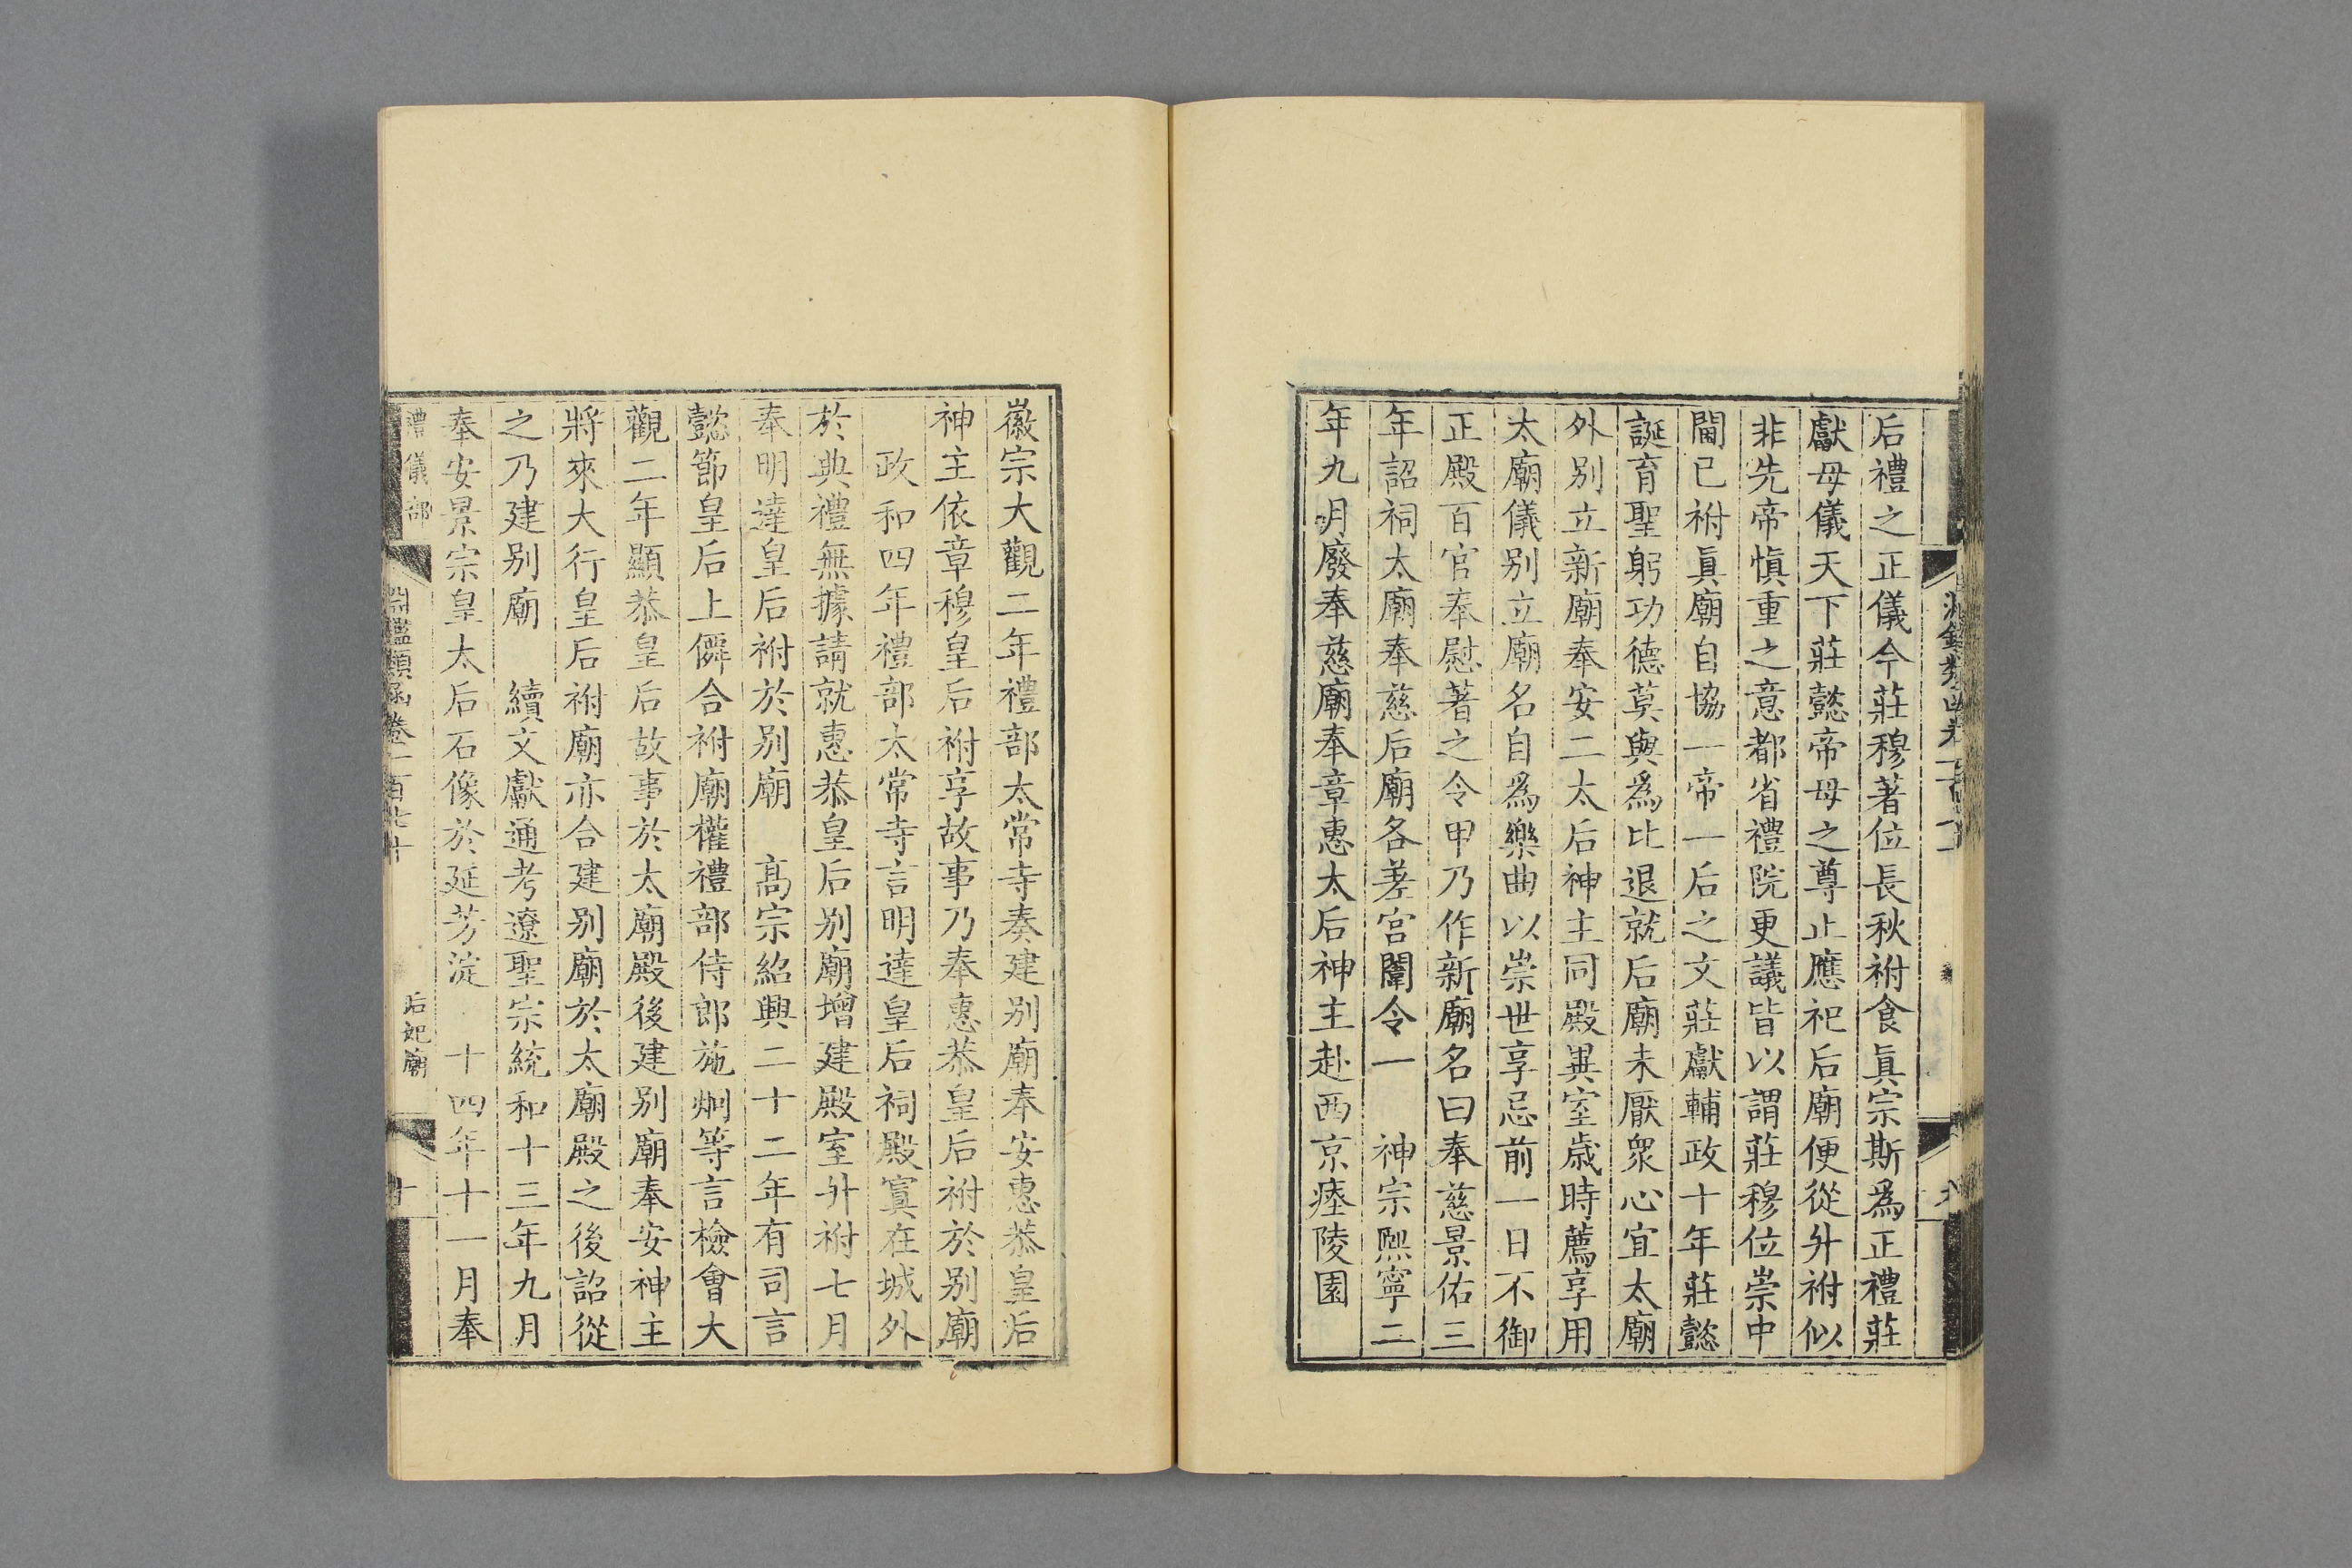 后禮之正儀今莊穆著位長秋祔食眞宗斯爲正禮莊
獻母儀天下莊懿帝母之尊止應祀后廟便從升祔似
非先帝愼重之意都省禮院更議皆以謂莊穆位崇中
閫已祔眞廟自協一帝一后之文莊獻輔政十年莊懿
誕育聖躬功德莫與爲比退就后廟未厭衆心宜太廟
外別立新廟奉安二太后神主同殿異室歲時薦享用
太廟儀別立廟名自爲樂曲以崇世享忌前一日不御
正殿百官奉慰著之令甲乃作新廟名曰奉慈景佑三
年詔祠太廟奉慈后廟各差宮闈令一　神宗熙寧二
年九月廢奉慈廟奉章惠太后神主赴西京瘞陵園
徽宗大觀二年禮部太常寺奏建別廟奉安惠恭皇后
神主依章穆皇后祔享故事乃奉惠恭皇后祔於別廟
政和四年禮部太常寺言明達皇后祠殿寘在城外
於典禮無據請就惠恭皇后別廟增建殿室升祔七月
奉明達皇后祔於別廟　高宗紹興二十二年有司言
懿節皇后上僊合祔廟權禮部侍郎施坰等言檢會大
觀二年顯恭皇后故事於太廟殿後建別廟奉安神主
將來大行皇后祔廟亦合建別廟於太廟殿之後詔從
之乃建別廟　續文獻通考遼聖宗統和十三年九月
奉安景宗皇太后石像於延芳淀　十四年十一月奉
禮儀部　淵鑑類函卷一百七十　后妃廟　十